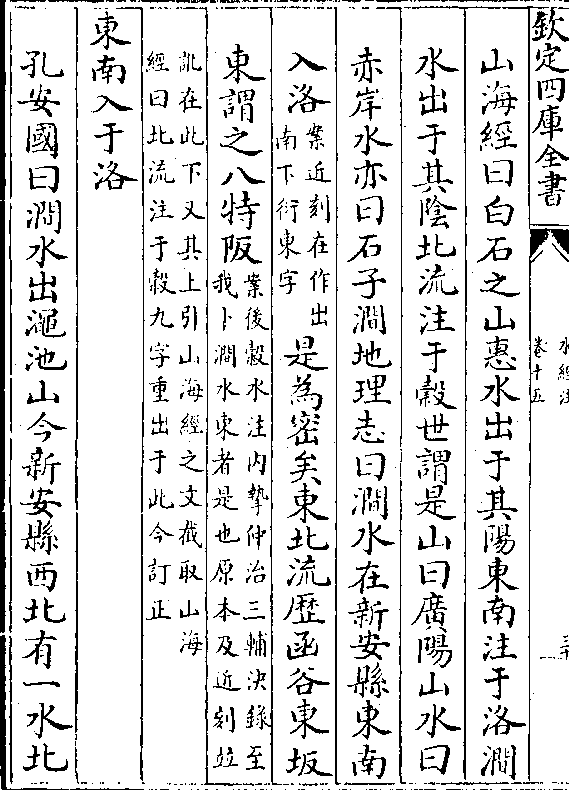 欽定四庫全書
水經注
卷十五
山海經曰白石之山惠水出于其陽東南注于洛澗
水出于其陰北流注于穀世謂是山曰廣陽山水曰
赤岸水亦曰石子澗地理志曰澗水在新安縣東南
入洛案近刻在作出
南下衍東字是為密矣東北流歷函谷東坂
東謂之八特阪案後穀水注内摯仲治三輔決錄至
我卜澗水東者是也原本及近刻竝
訛在此下又其上引山海經之文截取山海
經曰北流注于穀九字重出于此今訂正
東南入于洛
孔安國曰澗水出澠池山今新安縣西北有一水北